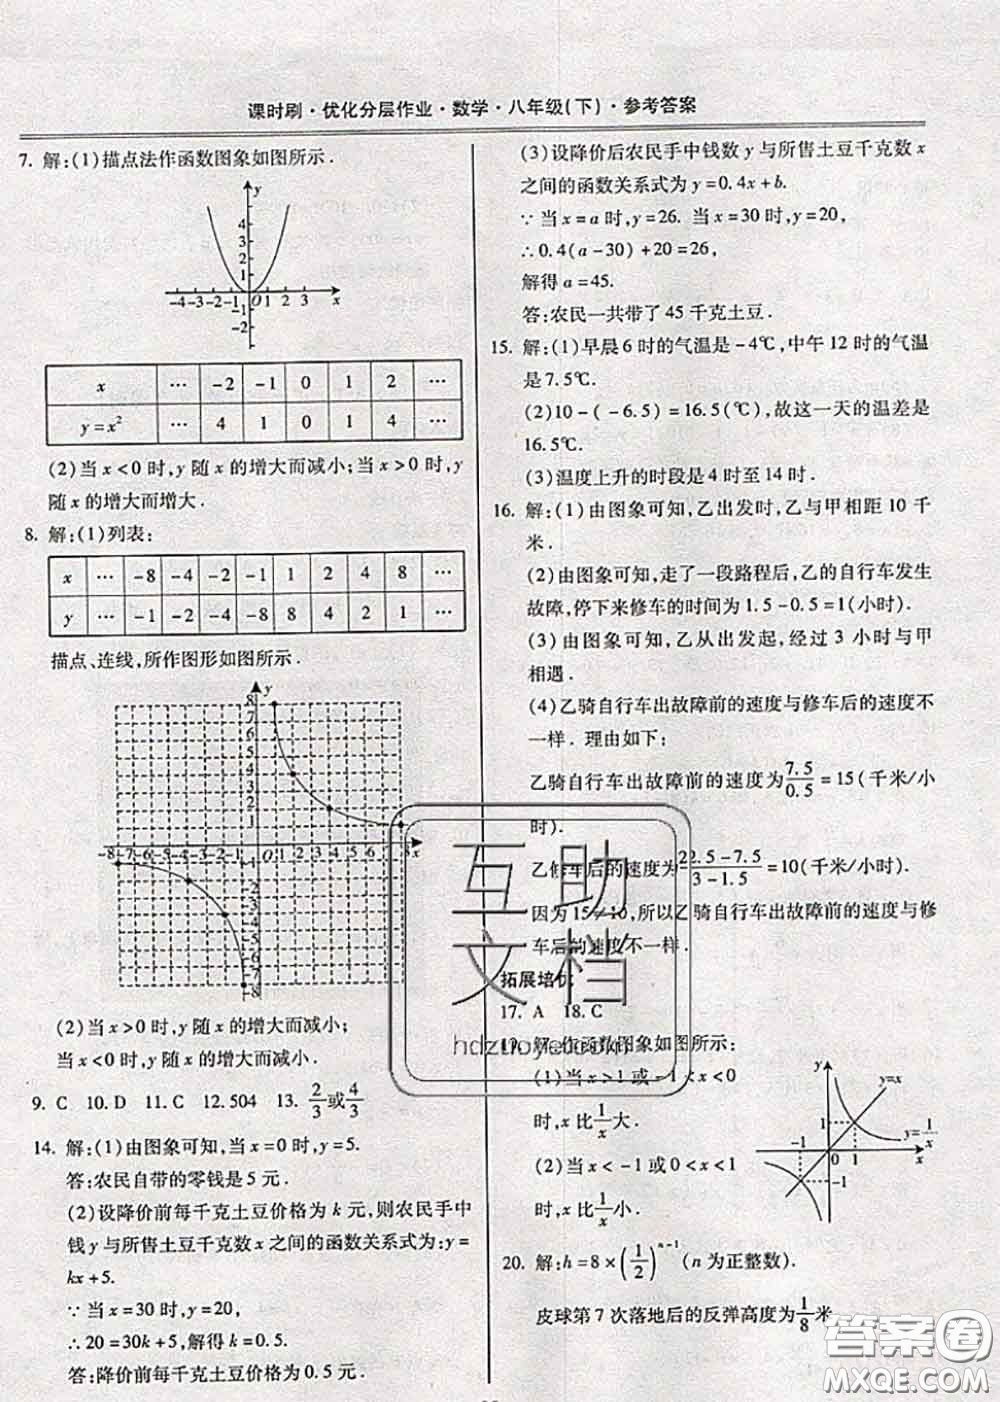 课时刷·优化分层作业·数学·八年级(下)·参考答案
7. 解:(1)描点法作函数图象如图所示.
y
4
3
2
1
-4 -3 -2 -1 O 1 2 3 x
-1
-2
x … -2 -1 0 1 2 …
y=x² … 4 1 0 1 4 …
(2)当 x<0 时,y 随 x 的增大而减小;当 x>0 时,y
随 x 的增大而增大.
8. 解:(1)列表:
x … -8 -4 -2 -1 1 2 4 8 …
y … -1 -2 -4 -8 8 4 2 1 …
描点、连线,所作图形如图所示.
y
8
7
6
5
4
3
2
1
-8 -7 -6 -5 -4 -3 -2 -1 O 1 2 3 4 5 6 7 8 x
-1
-2
-3
-4
-5
-6
-7
-8
(2)当 x>0 时,y 随 x 的增大而减小;
当 x<0 时,y 随 x 的增大而减小.
9. C 10. D 11. C 12. 504 13. 2/3或4/3
14. 解:(1)由图象可知,当 x=0 时,y=5.
答:农民自带的零钱是 5 元.
(2)设降价前每千克土豆价格为 k 元,则农民手中
钱 y 与所售土豆千克数 x 之间的函数关系式为:y=
kx+5.
∵当 x=30 时,y=20,
∴20=30k+5,解得 k=0.5.
答:降价前每千克土豆价格为 0.5 元.
(3)设降价后农民手中钱数 y 与所售土豆千克数 x
之间的函数关系式为 y=0.4x+b.
∵当 x=a 时,y=26. 当 x=30 时,y=20,
∴0.4(a-30)+20=26,
解得 a=45.
答:农民一共带了 45 千克土豆.
15. 解:(1)早晨 6 时的气温是-4℃,中午 12 时的气温
是 7.5℃.
(2)10-(-6.5)=16.5(℃),故这一天的温差是
16.5℃.
(3)温度上升的时段是 4 时至 14 时.
16. 解:(1)由图象可知,乙出发时,乙与甲相距 10 千
米.
(2)由图象可知,走了一段路程后,乙的自行车发生
故障,停下来修车的时间为 1.5-0.5=1(小时).
(3)由图象可知,乙从出发起,经过 3 小时与甲
相遇.
(4)乙骑自行车出故障前的速度与修车后的速度不
一样. 理由如下:
乙骑自行车出故障前的速度为7.5/0.5=15(千米/小
时).
乙修车后的速度为(22.5-7.5)/(3-1.5)=10(千米/小时).
因为 15≠10,所以乙骑自行车出故障前的速度与修
车后的速度不一样.
拓展培优
17. A 18. C
19. 解:作函数图象如图所示:
(1)当 x>1 或-1<x<0
时,x 比1/x大.
(2)当 x<-1 或 0<x<1
时,x 比1/x小.
y
y=x
y=1/x
1
-1 0 1 x
-1
20. 解:h=8×(1/2)ⁿ⁻¹(n 为正整数).
皮球第 7 次落地后的反弹高度为1/8米.
互助
文档
hdzuoye.com
答案卷
MXQE.COM